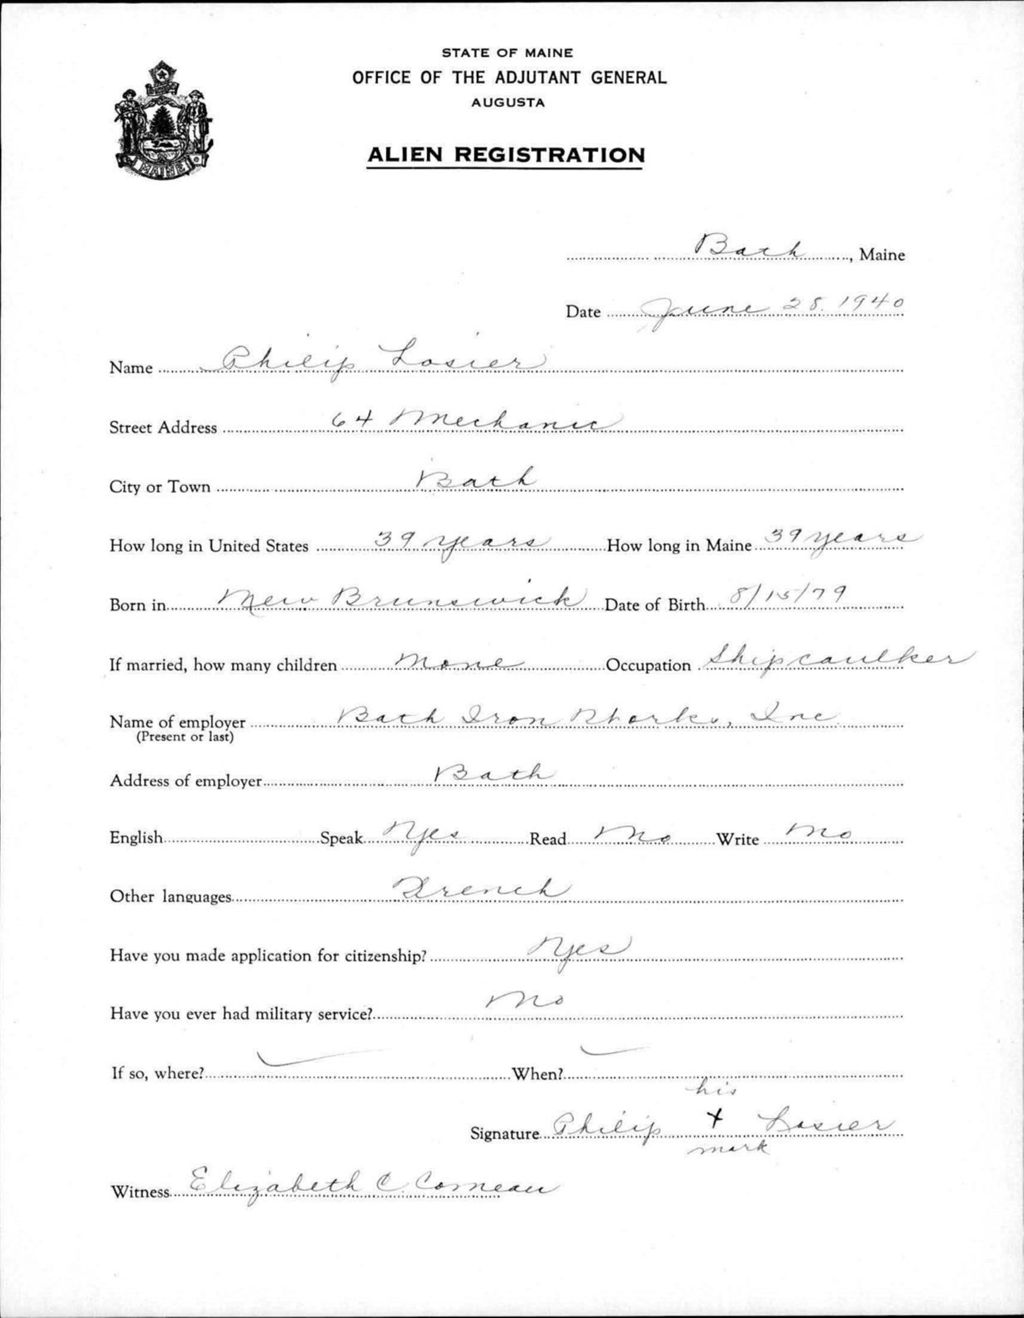 STATE OF MAINE
OFFICE OF THE ADJUTANT GENERAL
AUGUSTA
ALIEN REGISTRATION
MAINE
Bath, Maine
Date June 28. 1940
Name Philip Losier
Street Address 64 Mechanic
City or Town Bath
How long in United States 39 years How long in Maine 39 years
Born in New Brunswick Date of Birth 8/15/79
If married, how many children None Occupation Ship caulker
Name of employer Bath Iron Works, Inc
(Present or last)
Address of employer Bath
English Speak Yes Read No Write No
Other languages French
Have you made application for citizenship? Yes
Have you ever had military service? No
If so, where? When?
his
Signature Philip X Losier
mark
Witness Elizabeth C. Comeau